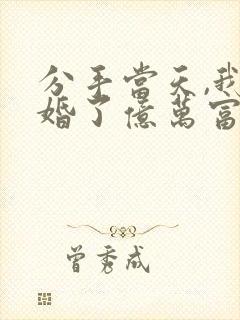 分手當天,我
婚了億萬富
曾秀成